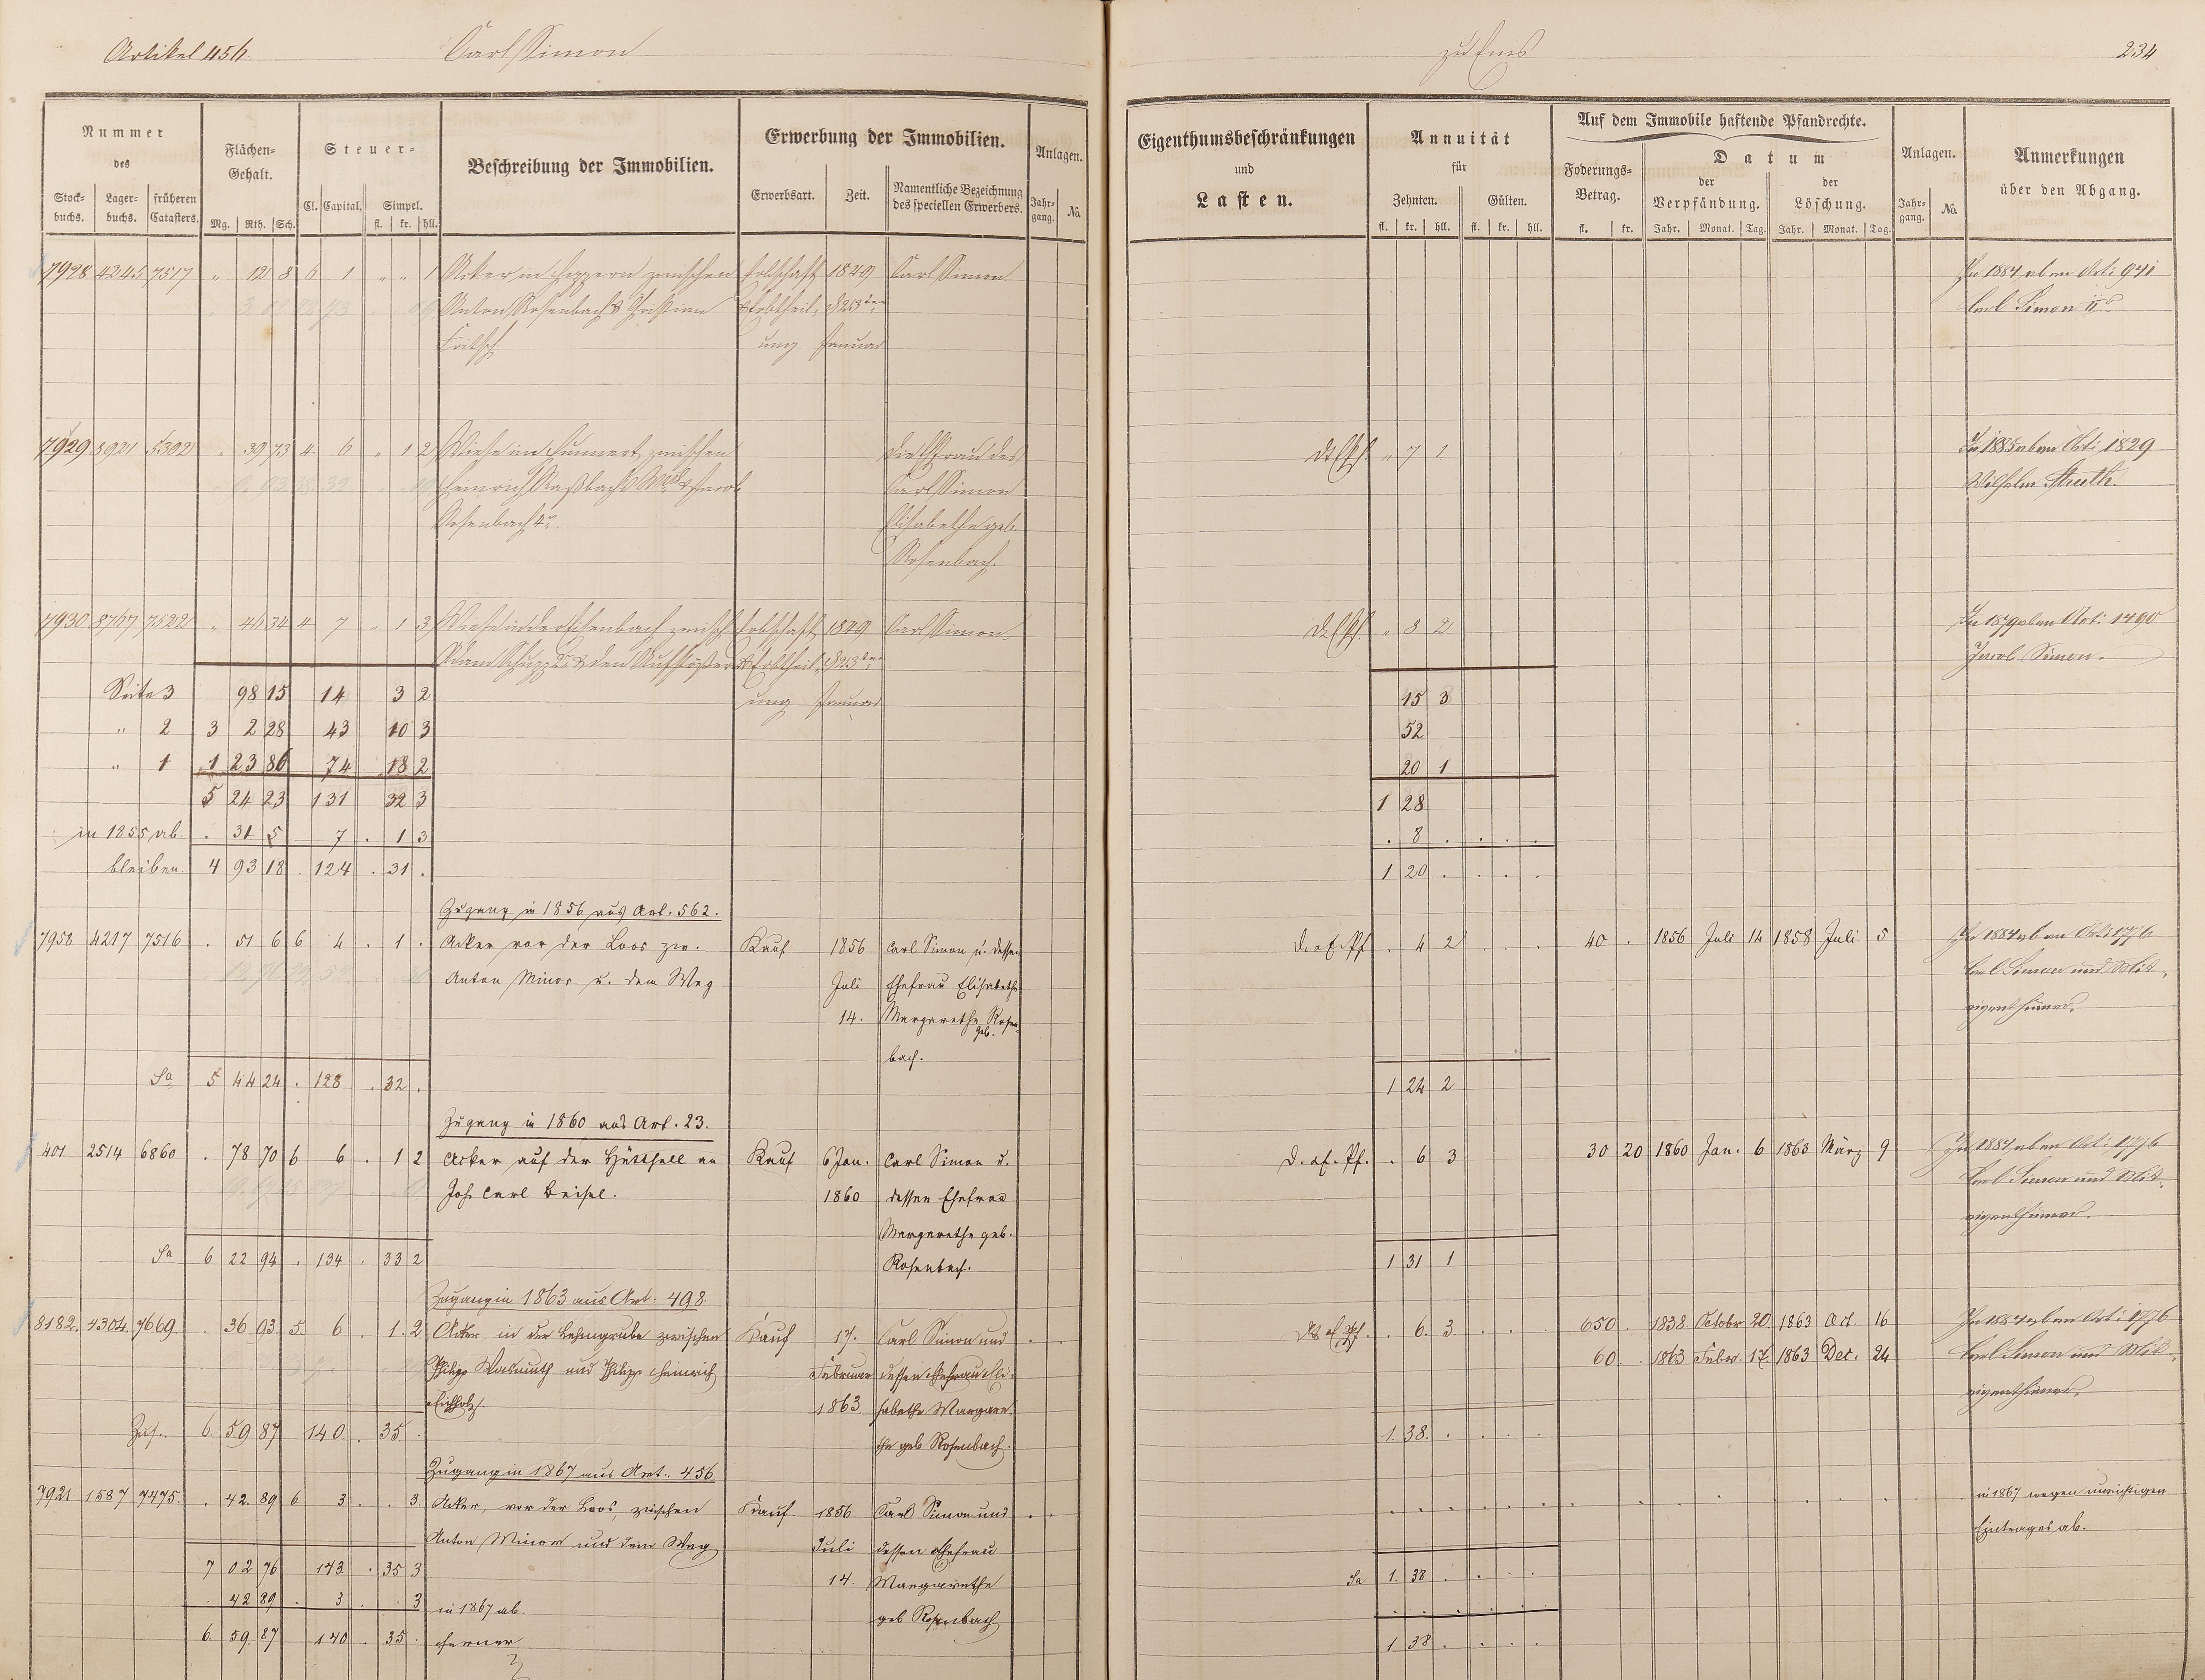 Artikel 456. Carl Simon zu Ems. 234
Nummer des
Stockbuchs. Lagerbuchs. früheren Catasters.
Flächen-Gehalt.
Mg. Rth. Sch.
Steuer-
Cl. Capital. Simpel.
fl. kr. hll.
Beschreibung der Immobilien.
Erwerbung der Immobilien.
Erwerbsart. Zeit. Namentliche Bezeichnung des speciellen Erwerbers.
Anlagen.
Jahrgang. No.
Eigenthumsbeschränkungen
und
Lasten.
Annuität
für
Zehnten. Gülten.
fl. kr. hll. fl. kr. hll.
Auf dem Immobile haftende Pfandrechte.
Foderungs-Betrag.
fl. kr.
Datum
der Verpfändung. der Löschung.
Jahr. Monat. Tag. Jahr. Monat. Tag.
Anlagen.
Jahrgang. No.
Anmerkungen
über den Abgang.
7928 4245 7517 „ 12 8 6 1 „ „ 1 Acker in zwischen Erbschaft 1849 Carl Simon In 1884 ab an Art: 941
Anton Rosenbach & Christian & Erbtheil- d 23ten Carl Simon IIr
ung Januar
7929 8921 5302 „ 39 73 4 6 „ 1 2 Wiese im zwischen die Ehefrau des „ 7 1 In 1885 ab an Art: 1829
Heinrich & Jacob Carl Simon Wilhelm
Rosenbach Elisabethe geb.
Rosenbach.
7930 8767 7522 „ 46 34 4 7 „ 1 3 Wiese in der zwisch Erbschaft 1849 Carl Simon. „ 8 2 In 1879 ab an Art: 1490
Adam Schupp & den & Erbtheil- d 23ten Jacob Simon.
Seite 3 98 15 14 3 2 ung Januar 15 3
„ 2 3 2 28 43 10 3 52
„ 1 1 23 86 74 18 2 20 1
5 24 23 131 32 3 1 28
in 1855 ab. . 31 5 7 . 1 3 . 8 . . . .
bleiben. 4 93 18 . 124 . 31 . 1 20 . . . .
Zugang in 1856 aus Art. 562.
7958 4217 7516 . 51 6 6 4 . 1 . Acker vor der Loos zw. Kauf 1856 Carl Simon u. dessen D. a. E. Pf. . 4 2 40 . 1856 Juli 14 1858 Juli 5 In 1884 ab an Art: 1776
Anton Minor u. dem Weg Juli Ehefrau Elisabethe Carl Simon und Mit-
14. Margarethe geb. Rosen- eigenthümer.
bach.
Sa 5 44 24 . 128 . 32 . 1 24 2
Zugang in 1860 aus Art. 23.
401 2514 6860 . 78 70 6 6 . 1 2 Acker auf der an Kauf 6 Jan. Carl Simon u. D. a. E. Pf. . 6 3 30 20 1860 Jan. 6 1863 März 9 In 1884 ab an Art: 1776
Joh. Carl Beisel. 1860 dessen Ehefrau Carl Simon und Mit-
Margarethe geb. eigenthümer.
Rosenbach.
Sa 6 22 94 . 134 . 33 2 1 31 1
Zugang in 1863 aus Art. 498.
8182. 4304. 7669. . 36 93 5. 6 . 1. 2 Acker in der Lehmgrube zwischen Kauf 17. Carl Simon und . . . 6. 3 650 . 1838 October 20. 1863 Oct. 16 In 1884 ab an Art: 1776
Philipp Wasmuth und Philipp Heinrich Februar dessen Ehefrau Eli- 60 . 1863 Febr. 17. 1863 Dec. 24 Carl Simon und Mit-
1863 sabethe Margare- eigenthümer.
Zus. 6. 59 87 140 . 35 . the geb Rosenbach. 1. 38. . . . .
Zugang in 1867 aus Art. 456
7921 1587 7475. . 42. 89 6 3 . . 3. Acker, vor der Loos, zwischen Kauf. 1856 Carl Simon und . . in 1867 wegen unrichtigen
Anton Minor und dem Weg Juli dessen Ehefrau Eintrages ab.
7 02 76 143 . 35 3 14. Margarethe Sa 1. 38 . . . .
. 42 89 . 3 . . 3 in 1867 ab. geb Rosenbach
6. 59. 87 140 . 35 . ferner 1 38 . . . .